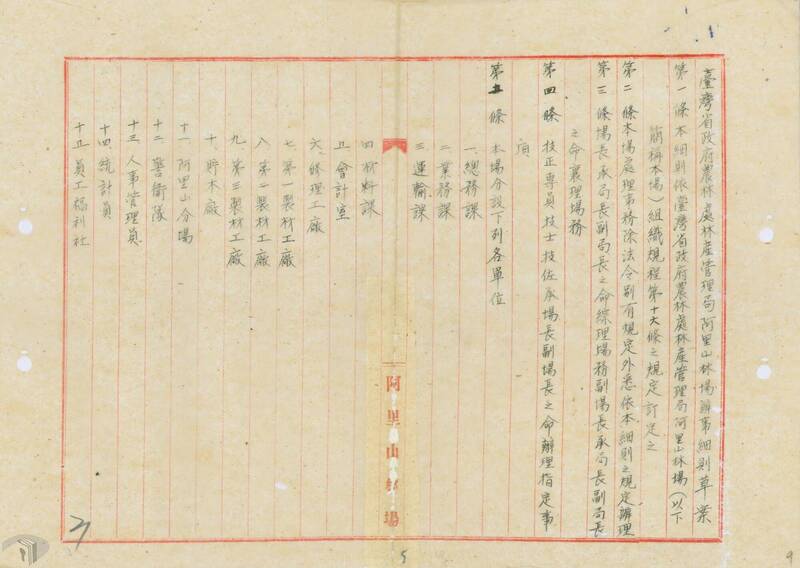 臺灣省政府農林處林產管理局阿里山林場辦事細則草案
第一條本細則依臺灣省政府農林處林產管理局阿里山林場(以下
簡稱本場)組織規程第十六條之規定訂定之
第二條本場處理事務除法令別有規定外悉依本細則之規定辦理
第三條場長承局長副局長之命綜理場務副場長承局長副局長
之命襄理場務
第四條技正專員技士技佐承場長副場長之命辦理指定事
項
第五條本場分設下列各單位
一、總務課
二、業務課
三、運輸課
四材料課
五會計室
六、修理工廠
七、第一製材工廠
八、第二製材工廠
九、第三製材工廠
十、貯木廠
十一阿里山分場
十二警衛隊
十三人事管理員
十四統計員
十五員工福利社
阿里山林場
5
9